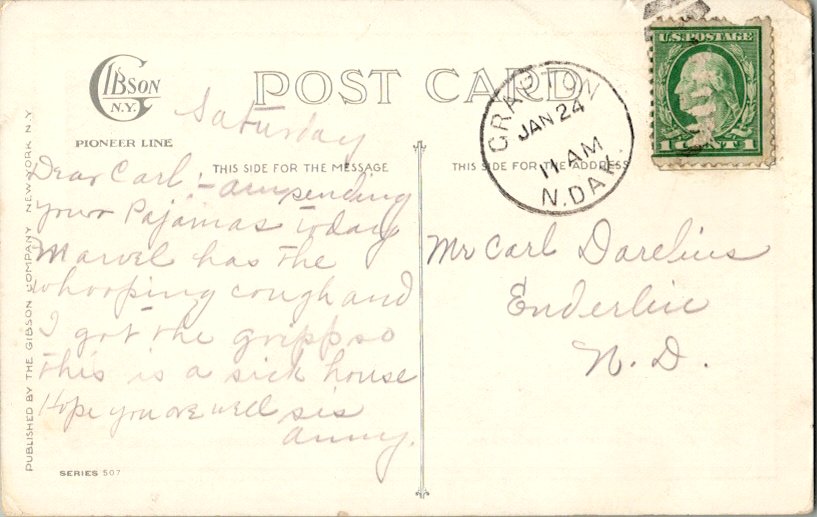 GIBSON
N.Y.
PIONEER LINE
POST CARD
THIS SIDE FOR THE MESSAGE
THIS SIDE FOR THE ADDRESS
GRAFTON
JAN 24
11 AM
N. DAK.
U.S. POSTAGE
1 CENT 1
Saturday
Dear Carl:- am sending
your Pajamas today
Marvel has the
whooping cough and
I got the gripp so
this is a sick house
Hope you are well sis
Anny.
Mr Carl Darelius
Enderlin
N. D.
PUBLISHED BY THE GIBSON COMPANY NEW YORK N.Y.
SERIES 507